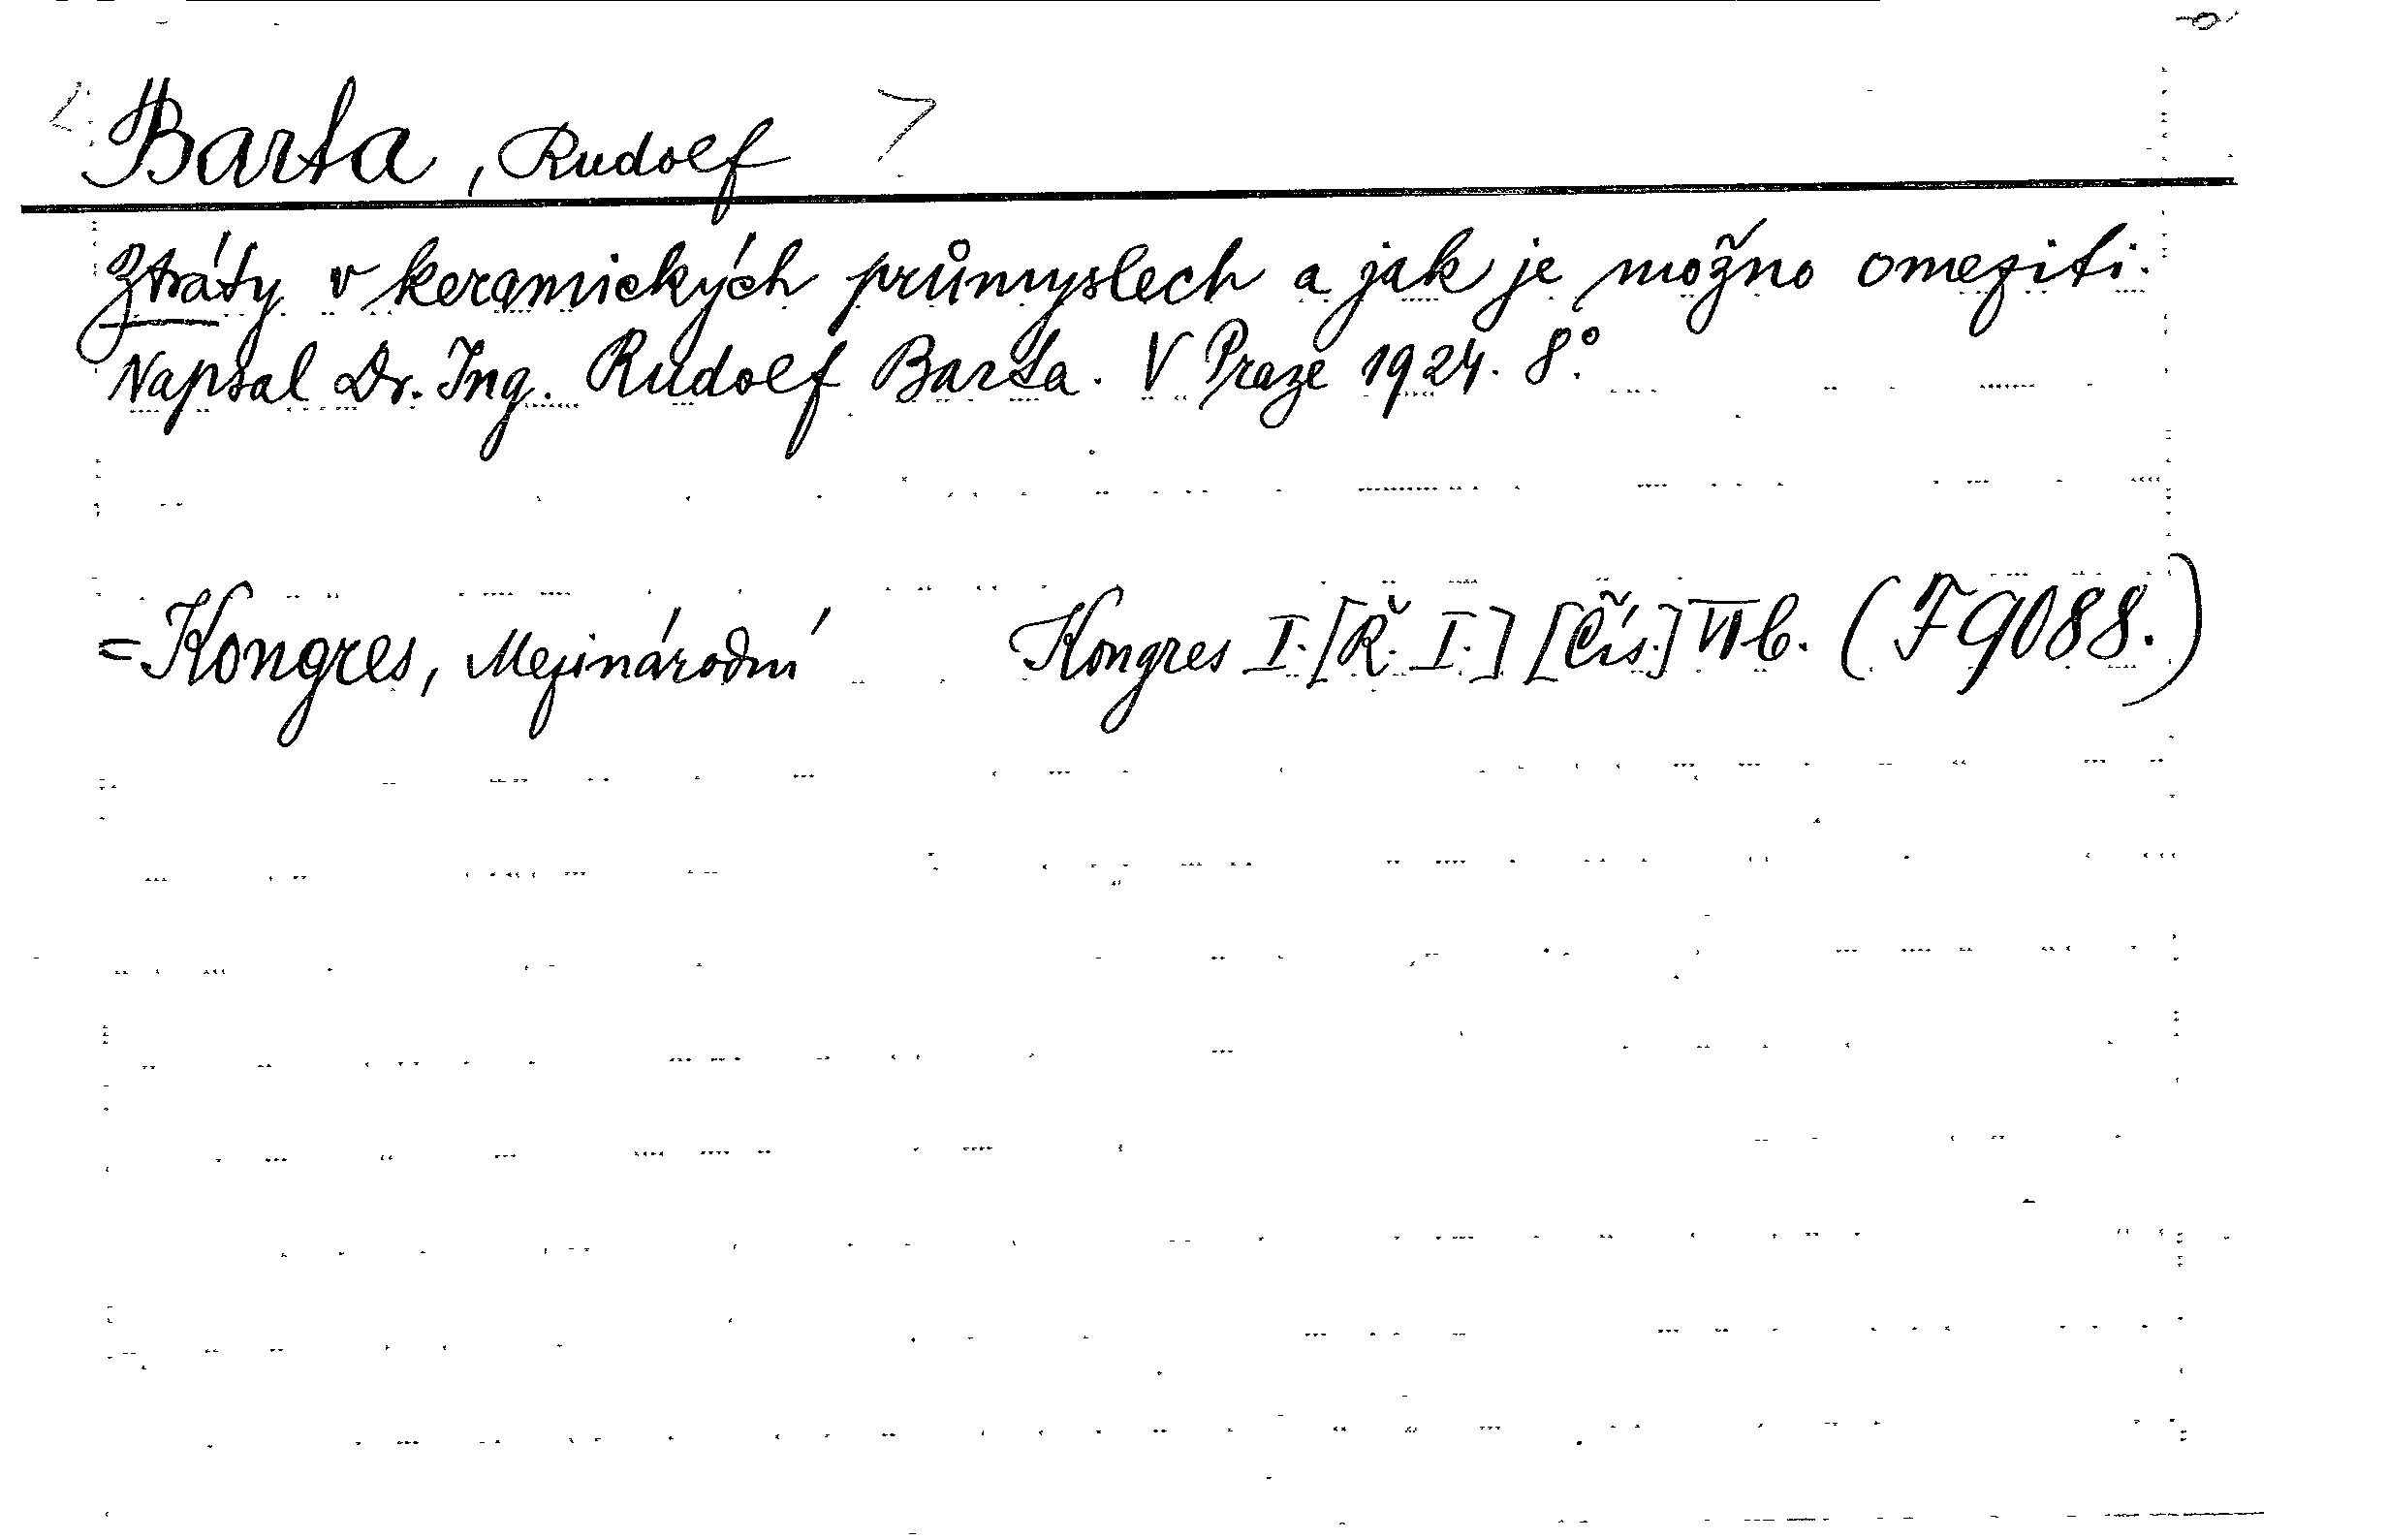 Barta, Rudolf
Ztráty v keramických průmyslech a jak je možno omeziti.
Napsal Dr. Ing. Rudolf Barta. V Praze 1924. 8°.
=Kongres, Mezinárodní Kongres I. [Ř. I.] [Čís.] VI b. (F 9088.)